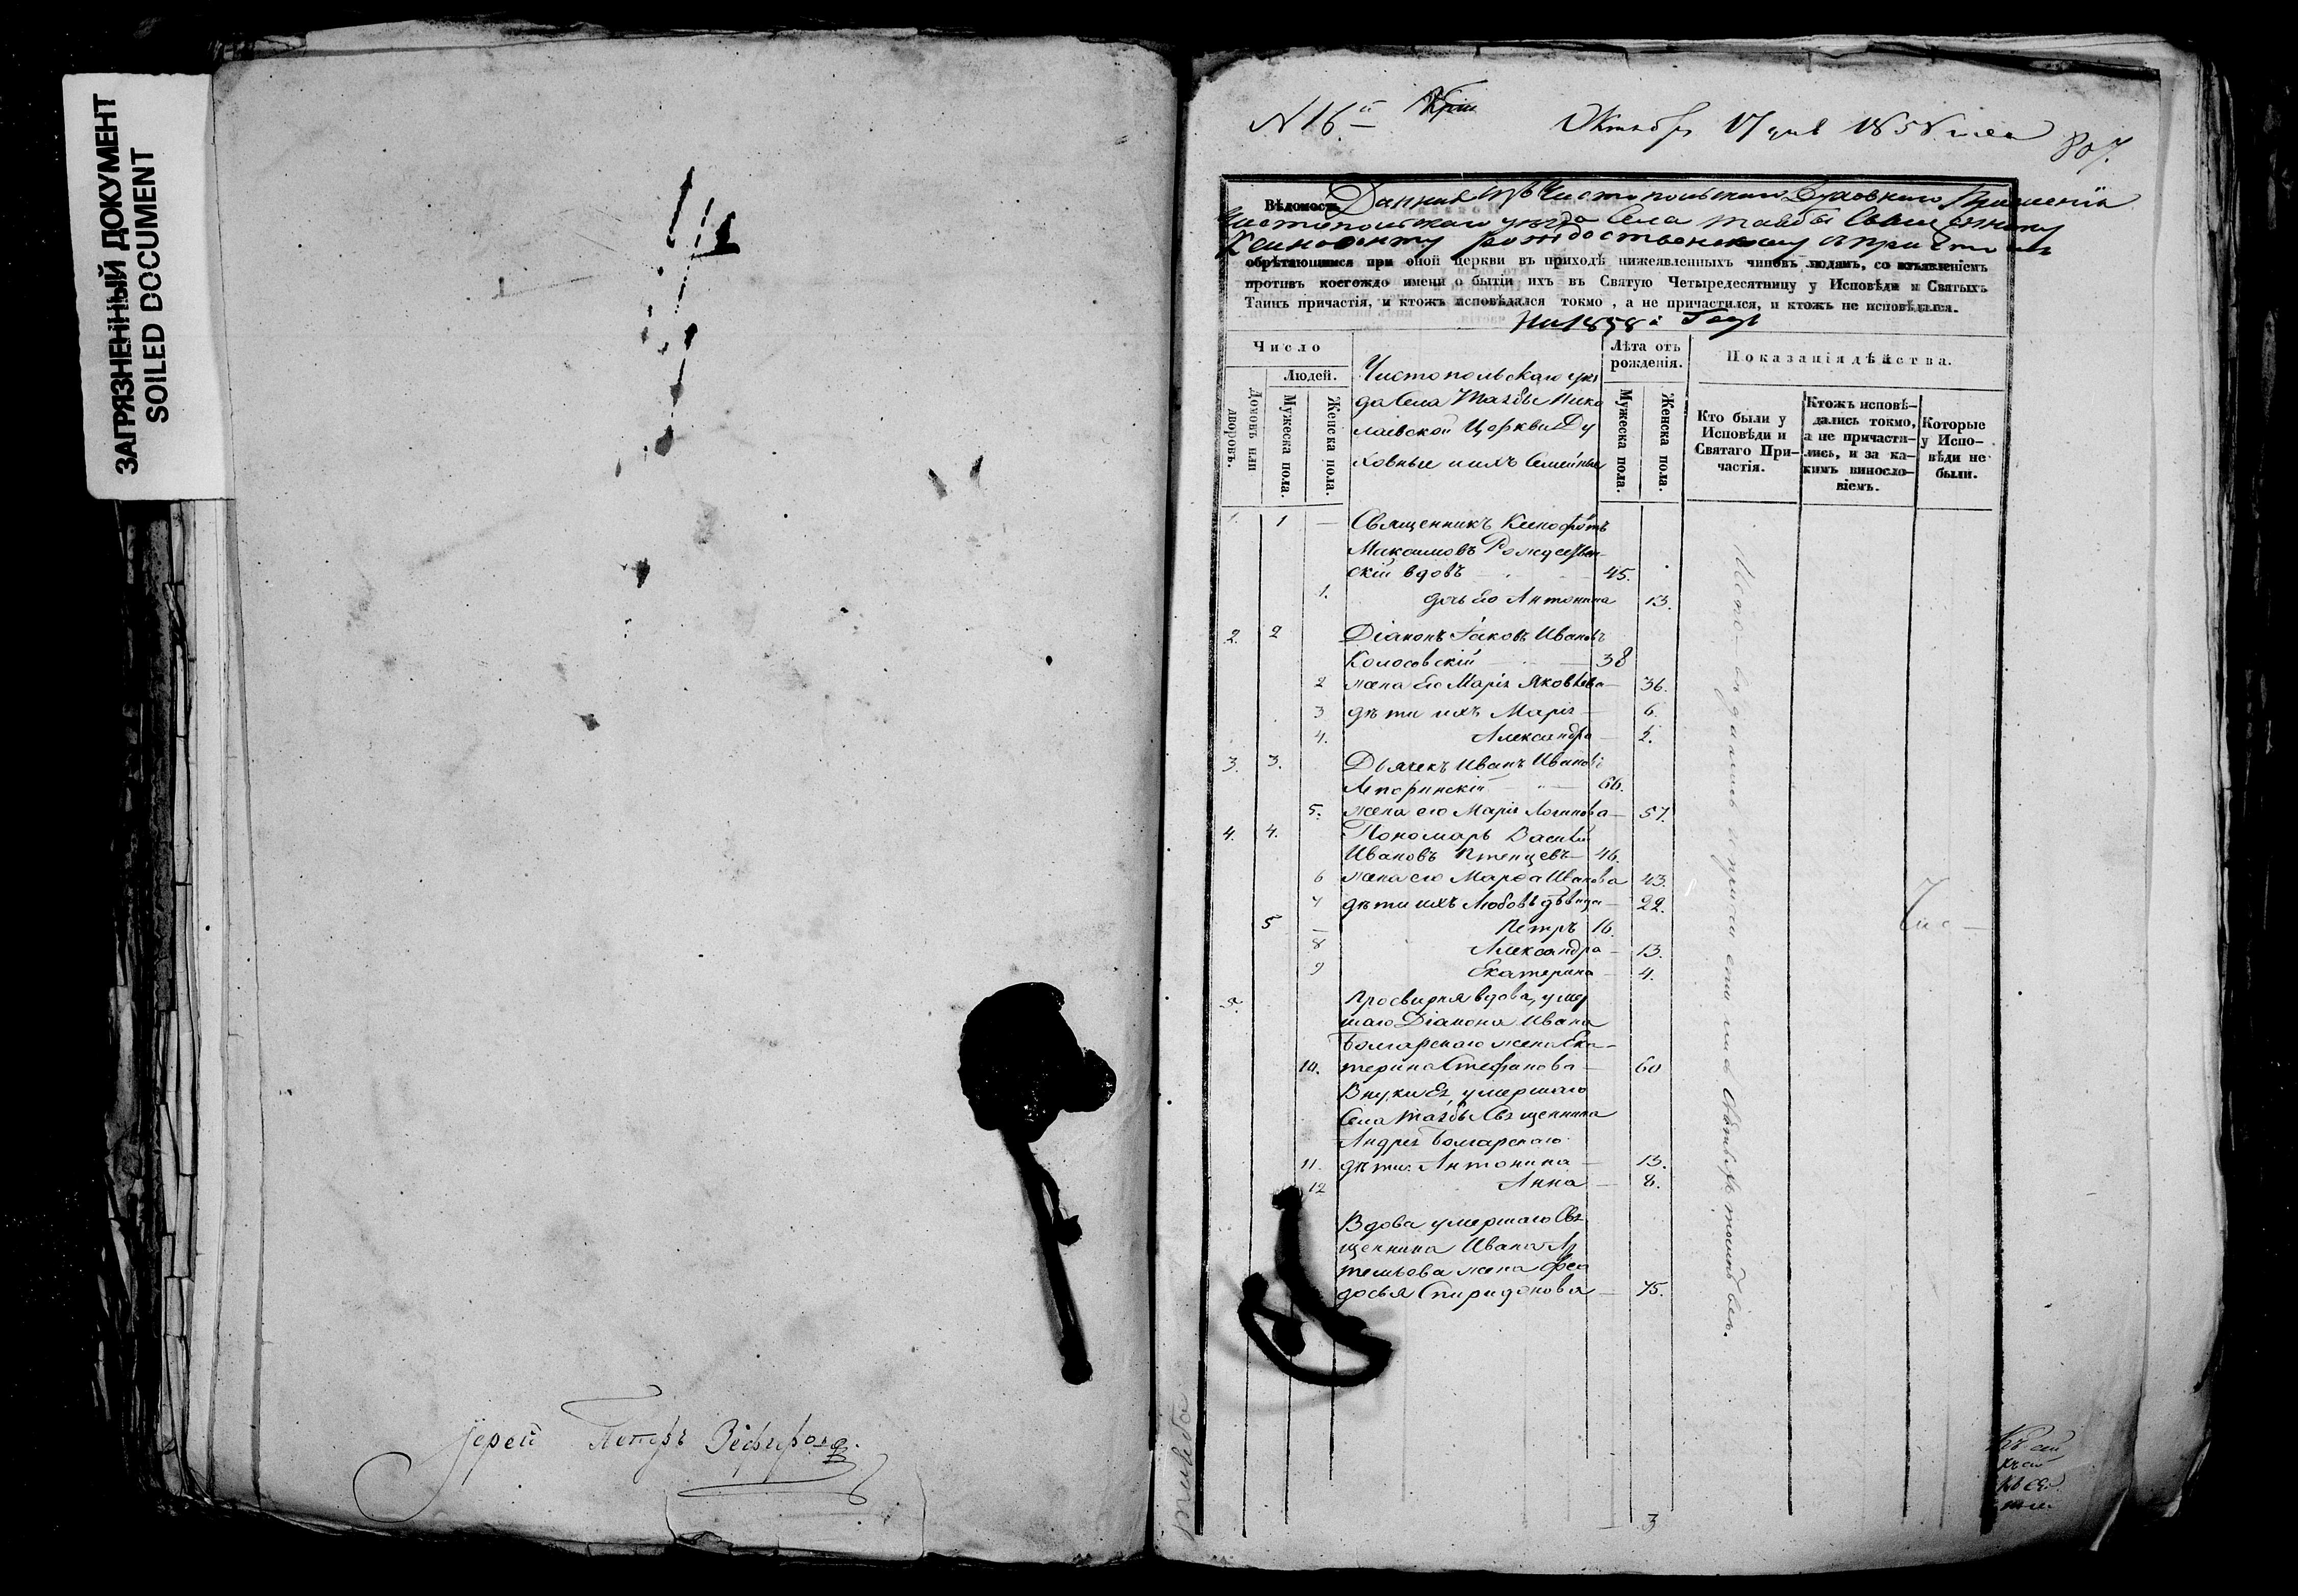 ЗАГРЯЗНЕННЫЙ ДОКУМЕНТ
SOILED DOCUMENT
Іерей Петръ Зефировъ
N 16й
Октября 17 дня 1858 года
807.
Вѣдомость Данная изъ Чистопольскаго Духовнаго Правленія
Чистопольскаго уѣзда Села Таябы Священнику
Ксенофонту Рождественскому съ причтомъ
обрѣтающимся при оной церкви въ приходѣ нижеявленныхъ чиновъ людямъ, со изъявленіемъ
противъ коегождо имени о бытіи ихъ въ Святую Четыредесятницу у Исповѣди и Святыхъ
Таинъ причастія, и ктожъ исповѣдался токмо, а не причастился, и ктожъ не исповѣдался.
На 1858й Годъ
Число
Людей.
Домовъ или дворовъ.
Мужеска пола.
Женска пола.
Чистопольскаго уѣз
да Села Таябы Нико
лаевской Церкви Ду
ховные и ихъ Семейные
Лѣта отъ рожденія.
Мужеска пола.
Женска пола.
Показанія дѣйства.
Кто были у Исповѣди и Святаго При-частія.
Ктожъ исповѣ-дались токмо, а не причасти-лись, и за ка-кимъ винносло-віемъ.
Которые у Испо-вѣди не были.
1. 1 — Священникъ Ксенофонтъ
Максимовъ Рождествен-
скій вдовъ — 45.
1. дочь его Антонина 13.
2. 2 Діаконъ Іаковъ Ивановъ
Колосовскій — 38
2 жена его Марія Яковлева — 36.
3 дѣти ихъ Марія — 6.
4. Александра — 2.
3. 3. Дьячекъ Иванъ Ивановъ
Лепоринскій — 66.
5. жена его Марія Логинова — 57.
4. 4. Пономарь Василій
Ивановъ Птенцевъ — 46.
6 жена его Марѳа Иванова 43.
7 дѣти ихъ Любовь дѣвица — 22.
5 — Петръ 16.
8 Александра — 13.
9 Екатерина — 4.
5. Просвирня вдова, умер
шаго Діакона Ивана
Болгарскаго жена Ека-
10. терина Стефанова — 60
Внуки Ея, умершаго
Села Таябы Священника
Андрея Болгарскаго
11. дѣти: Антонина — 13.
12 Анна — 8.
Вдова умершаго Свя
щенника Ивана Ар
темьова жена Ѳео
досья Спиридонова — 75.
3